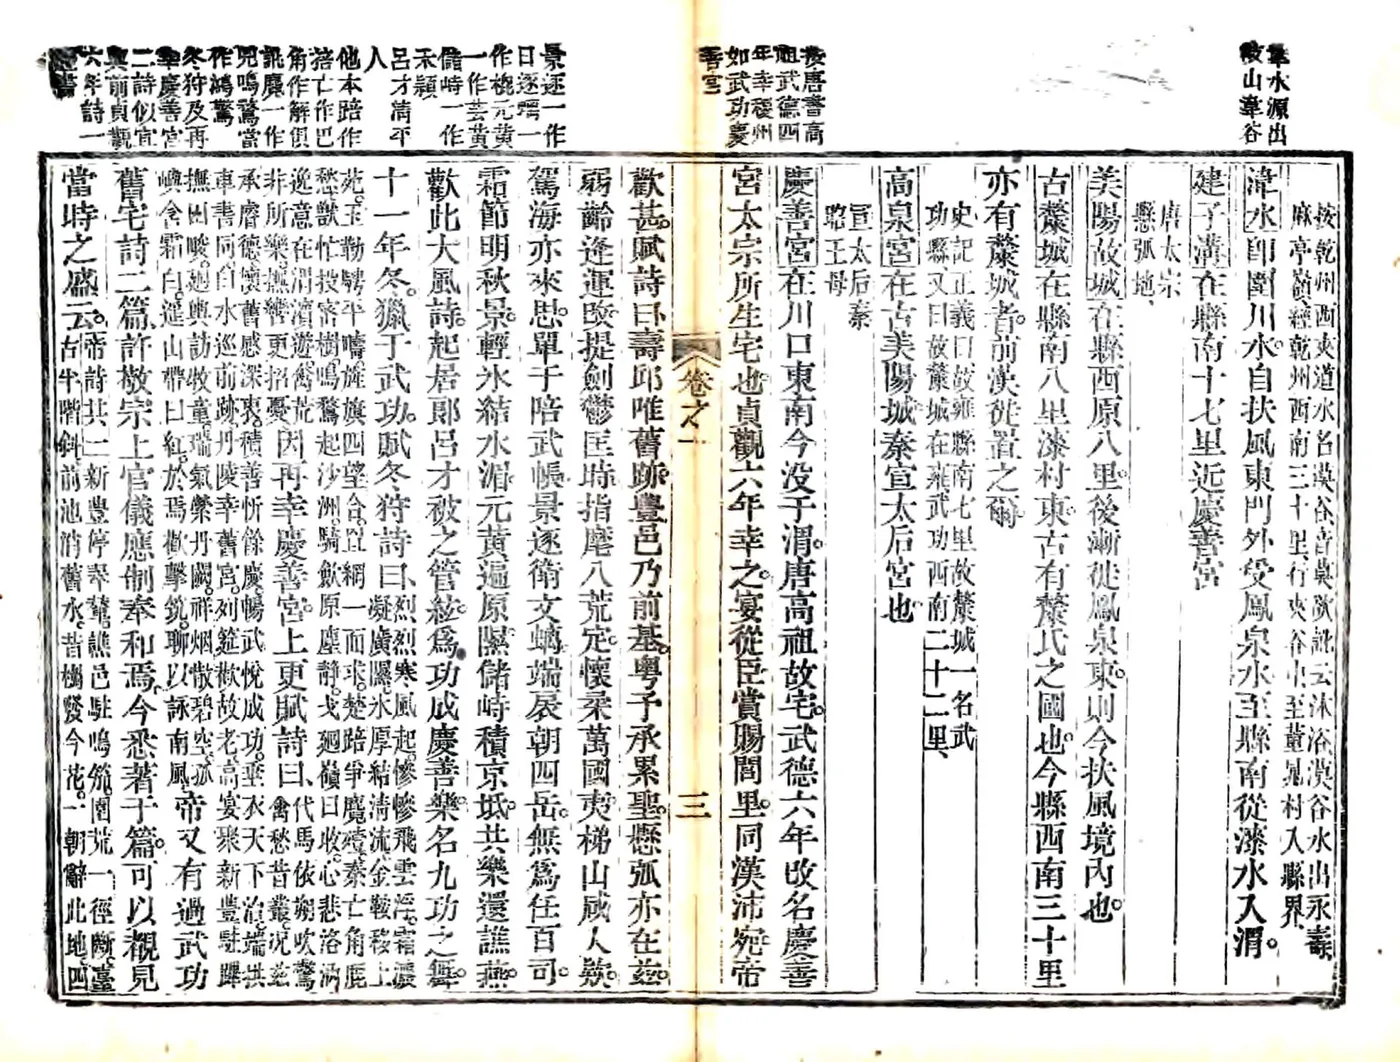 湋水源出
岐山湋谷
按唐書高
祖武德四
年幸稷州
如武功慶
善宮
景逐一作
日逐螭一
作桅元黄
一作芸黄
儲峙一作
禾穎
呂才淸平
人
他本踣作
掊亡作巴
角作解俱
訛麑一作
兕鳴鶩當
作鴻鶩
冬狩及再
幸慶善宮
二詩似宜
與前貞觀
六年詩一
按乾州西夾道水名漠谷音莫訛云沐浴漠谷水出永壽
麻亭嶺經乾州西南三十里行夾谷中至董晁村入縣界
湋水卽圍川水自扶風東門外受鳳泉水至縣南從漆水入渭
建子溝在縣南十七里近慶善宮
唐太宗
懸弧地
美陽故城在縣西原八里後漸徙鳳泉東則今扶風境內也
古斄城在縣南八里漆村東古有斄氏之國也今縣西南三十里
亦有斄城者前漢徙置之爾
史記正義曰故雍縣南七里故斄城一名武
功縣又曰故斄城在雍武功西南二十二里
高泉宮在古美陽城秦宣太后宮也
宣太后秦
昭王母
慶善宮在川口東南今没于渭唐高祖故宅武德六年改名慶善
宮太宗所生宅也貞觀六年幸之宴從臣賞賜閭里同漢沛宛帝
卷之一
三
歡甚賦詩曰壽邱唯舊跡酆邑乃前基粤予承累聖懸弧亦在茲
弱齡逢運改提劍鬱匡時指麾八荒定懷柔萬國夷梯山咸人欵
駕海亦來思單于陪武帳景逐衛文螭端扆朝四岳無爲任百司
霜節明秋景輕氷結水湄元黄遍原隰儲峙積京坻共樂還譙燕
歡此大風詩起居郎呂才被之管絃爲功成慶善樂名九功之舞
十一年冬獵于武功賦冬狩詩曰烈烈寒風起慘慘飛雲浮霜濃
凝廣隰氷厚結清流金鞍移上
苑玉勒騁平疇旌旗四望合罝網一面求楚踣爭魔殪秦亡角鹿
愁獸忙投密樹鳴鶩起沙洲騎歛原塵靜戈廻嶺日收心悲洛汭
逸意在渭濱遊禽荒
非所樂撫轡更招憂因再幸慶善宮上更賦詩曰代馬依朔吹驚
禽愁昔叢况茲
承睿德懷舊感深衷積善忻餘慶暢武悅成功垂衣天下治端拱
車書同白水巡前跡丹陵幸舊宮列筵歡故老高宴聚新豐駐蹕
撫田畯廻輿訪牧童瑞氣縈丹闕祥烟散碧空孤
嶼含霜白遥山帶日紅於焉歡擊筑聊以詠南風帝又有過武功
舊宅詩二篇許敬宗上官儀應制奉和焉今悉著于篇可以覩見
當時之盛云帝詩其一新豐停翠輦譙邑駐鳴笳園荒一徑斷臺
古半階斜前池消舊水昔樹發今花一朝辭此地四